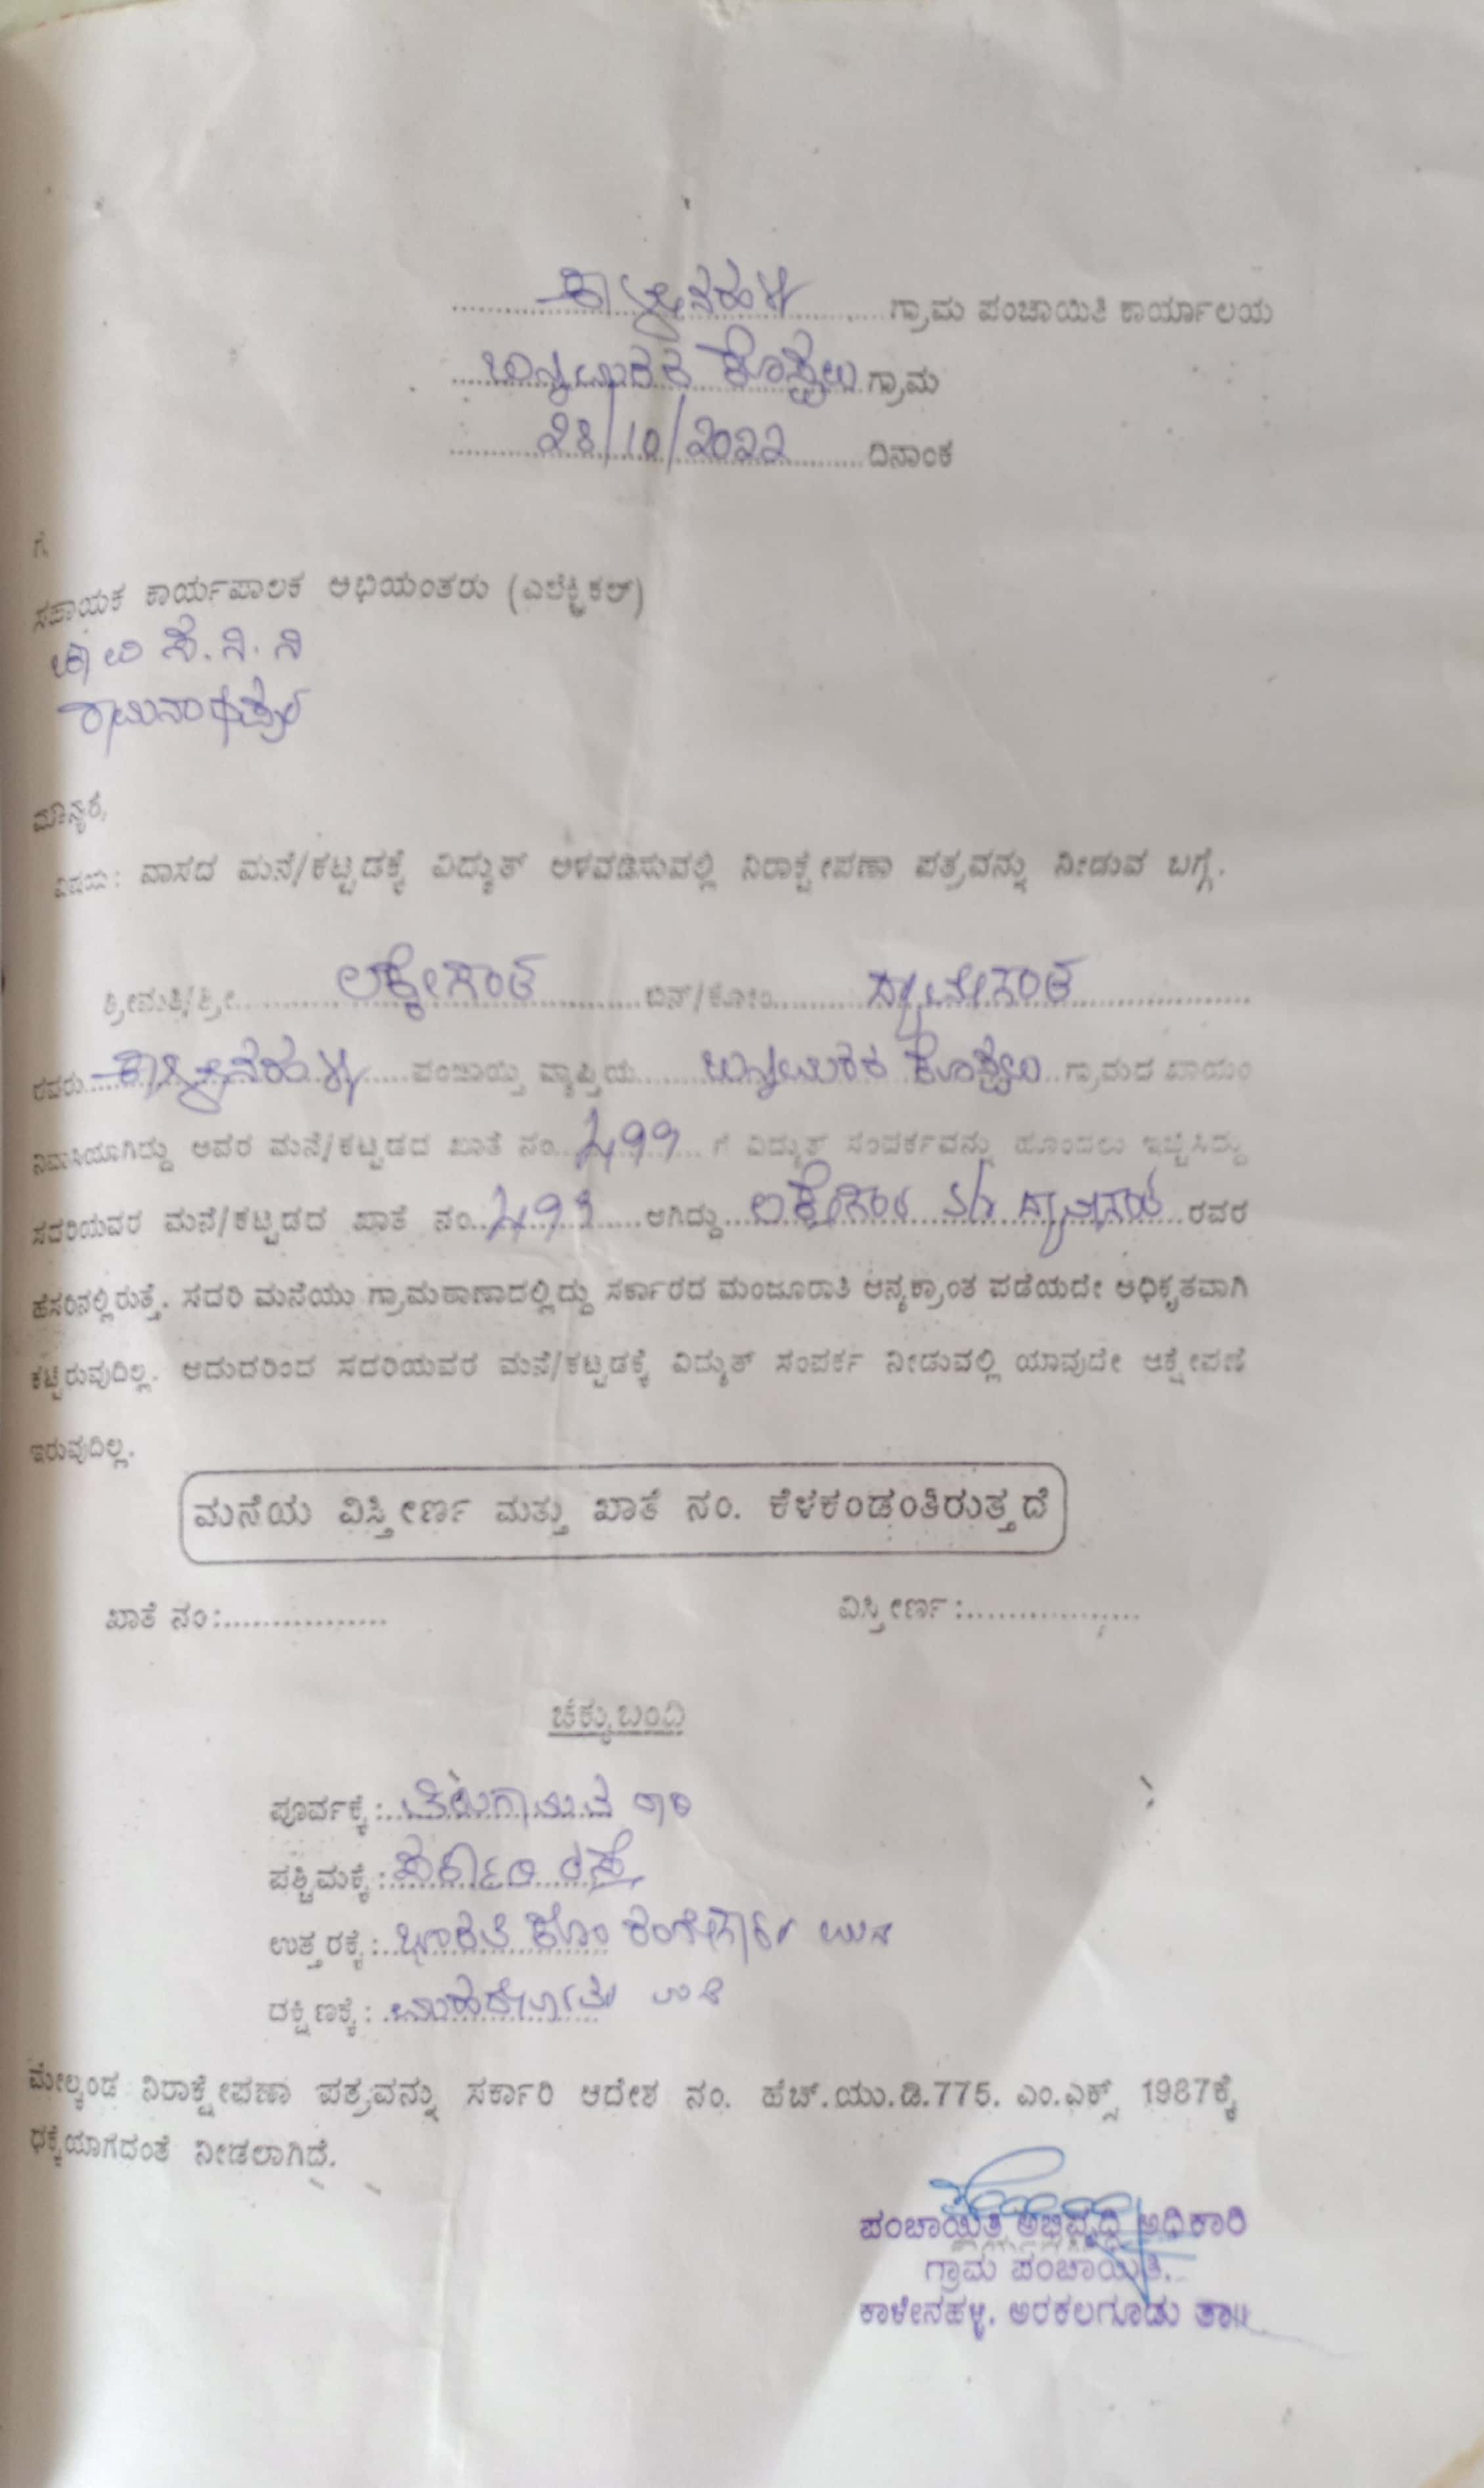 ಕಾಳೇನಹಳ್ಳಿ ಗ್ರಾಮ ಪಂಚಾಯಿತಿ ಕಾರ್ಯಾಲಯ
ಕೊಪ್ಪಲು ಗ್ರಾಮ
28/10/2022 ದಿನಾಂಕ
ಗೆ,
ಸಹಾಯಕ ಕಾರ್ಯಪಾಲಕ ಅಭಿಯಂತರು (ಎಲೆಕ್ಟ್ರಿಕಲ್)
ಚಾ ವಿ ಸ. ನಿ. ನಿ
ರಾಮನಾಥಪುರ
ಮಾನ್ಯರೆ,
ವಿಷಯ: ವಾಸದ ಮನೆ/ಕಟ್ಟಡಕ್ಕೆ ವಿದ್ಯುತ್ ಅಳವಡಿಸುವಲ್ಲಿ ನಿರಾಕ್ಷೇಪಣಾ ಪತ್ರವನ್ನು ನೀಡುವ ಬಗ್ಗೆ.
ಶ್ರೀಮತಿ/ಶ್ರೀ ಲಕ್ಕೇಗೌಡ ಬಿನ್/ಕೋಂ
ರವರು ಕಾಳೇನಹಳ್ಳಿ ಪಂಚಾಯ್ತಿ ವ್ಯಾಪ್ತಿಯ ಕೊಪ್ಪಲು ಗ್ರಾಮದ ಖಾಯಂ
ನಿವಾಸಿಯಾಗಿದ್ದು ಅವರ ಮನೆ/ಕಟ್ಟಡದ ಖಾತೆ ನಂ. ಗೆ ವಿದ್ಯುತ್ ಸಂಪರ್ಕವನ್ನು ಹೊಂದಲು ಇಚ್ಛಿಸಿದ್ದು
ಸದರಿಯವರ ಮನೆ/ಕಟ್ಟಡದ ಖಾತೆ ನಂ. ಆಗಿದ್ದು ಲಕ್ಕೇಗೌಡ ರವರ
ಹೆಸರಿನಲ್ಲಿರುತ್ತೆ. ಸದರಿ ಮನೆಯು ಗ್ರಾಮಠಾಣಾದಲ್ಲಿದ್ದು ಸರ್ಕಾರದ ಮಂಜೂರಾತಿ ಅನ್ಯಕ್ರಾಂತ ಪಡೆಯದೇ ಅಧಿಕೃತವಾಗಿ
ಕಟ್ಟಿರುವುದಿಲ್ಲ. ಆದುದರಿಂದ ಸದರಿಯವರ ಮನೆ/ಕಟ್ಟಡಕ್ಕೆ ವಿದ್ಯುತ್ ಸಂಪರ್ಕ ನೀಡುವಲ್ಲಿ ಯಾವುದೇ ಆಕ್ಷೇಪಣೆ
ಇರುವುದಿಲ್ಲ.
ಮನೆಯ ವಿಸ್ತೀರ್ಣ ಮತ್ತು ಖಾತೆ ನಂ. ಕೆಳಕಂಡಂತಿರುತ್ತದೆ
ಖಾತೆ ನಂ:................. ವಿಸ್ತೀರ್ಣ:..................
ಚಕ್ಕುಬಂದಿ
ಪೂರ್ವಕ್ಕೆ:
ಪಶ್ಚಿಮಕ್ಕೆ: ಸರ್ಕಾರಿ ರಸ್ತೆ
ಉತ್ತರಕ್ಕೆ: ಕೋಂ
ದಕ್ಷಿಣಕ್ಕೆ:
ಮೇಲ್ಕಂಡ ನಿರಾಕ್ಷೇಪಣಾ ಪತ್ರವನ್ನು ಸರ್ಕಾರಿ ಆದೇಶ ನಂ. ಹೆಚ್.ಯು.ಡಿ.775. ಎಂ.ಎಕ್ಸ್ 1987ಕ್ಕೆ
ಧಕ್ಕೆಯಾಗದಂತೆ ನೀಡಲಾಗಿದೆ.
ಪಂಚಾಯಿತಿ ಅಭಿವೃದ್ಧಿ ಅಧಿಕಾರಿ
ಗ್ರಾಮ ಪಂಚಾಯಿತಿ.
ಕಾಳೇನಹಳ್ಳಿ. ಅರಕಲಗೂಡು ತಾ||